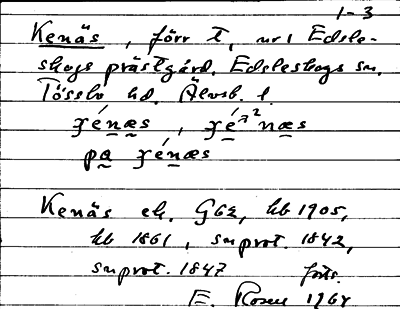 1-3
Kenäs, förr t. nr 1 Edsle-
skogs prästgård. Edsleskogs sn.
Tössbo hd. Älvsb. l.
Kenäs ek. GGE, hb 1905,
hb 1861, snprot. 1842,
snprot. 1847 forts.
E. Rosen 1964